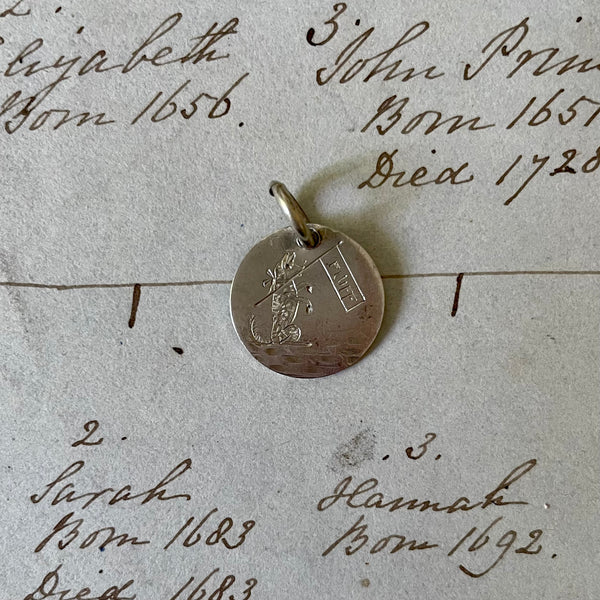 2.
Elizabeth
Born 1656.
3.
John Prin
Born 1651
Died 1728
FLUFF
2.
Sarah
Born 1683
Died 1683
3.
Hannah
Born 1692.